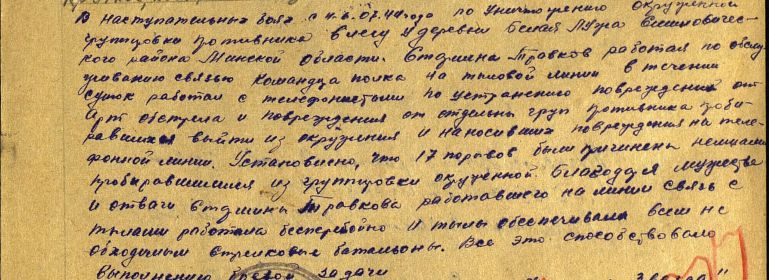 В наступательных боях с 4-6.07.44 года по уничтожению окружённой
группировки противника в лесу у деревни Белая Лужа Смиловичес-
кого района Минской области. Старшина Травков работал по обслу
живанию связью командира полка на тыловой линии в течении
суток работал с телефонистами по устранению повреждений от
арт обстрела и повреждения от отдельных груп противника проби
равшихся выйти из окружения и наносивших повреждения на теле-
фонной линии. Установлено, что 17 порывов были причинены немцами
пробиравшимися из группировки окружённой. Благодаря мужества
и отваги старшины Травкова работавшего на линии связь с
тылами работала бесперебойно и тылы обеспечивали всем не
обходимым стрелковые батальоны. Все это способствовало
выполнению боевой задачи